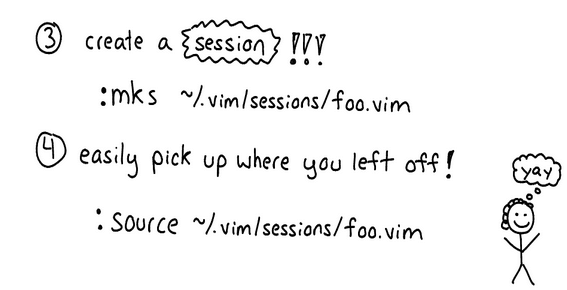 ③ create a session !!!
:mks ~/.vim/sessions/foo.vim
④ easily pick up where you left off!
yay
:source ~/.vim/sessions/foo.vim